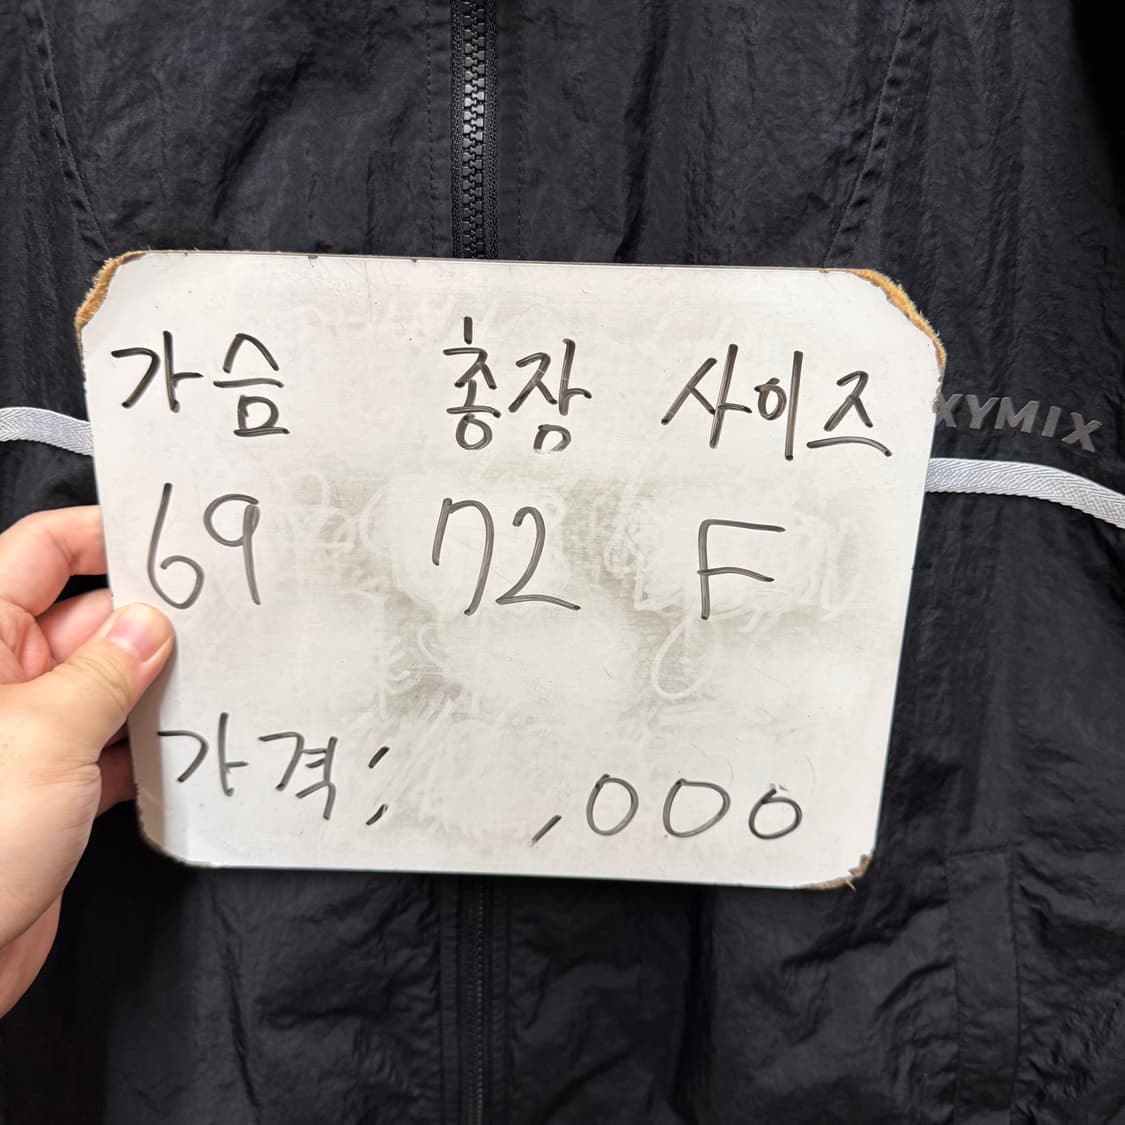 가슴 총장 사이즈
XYMIX
69 72 F
가격; ,000